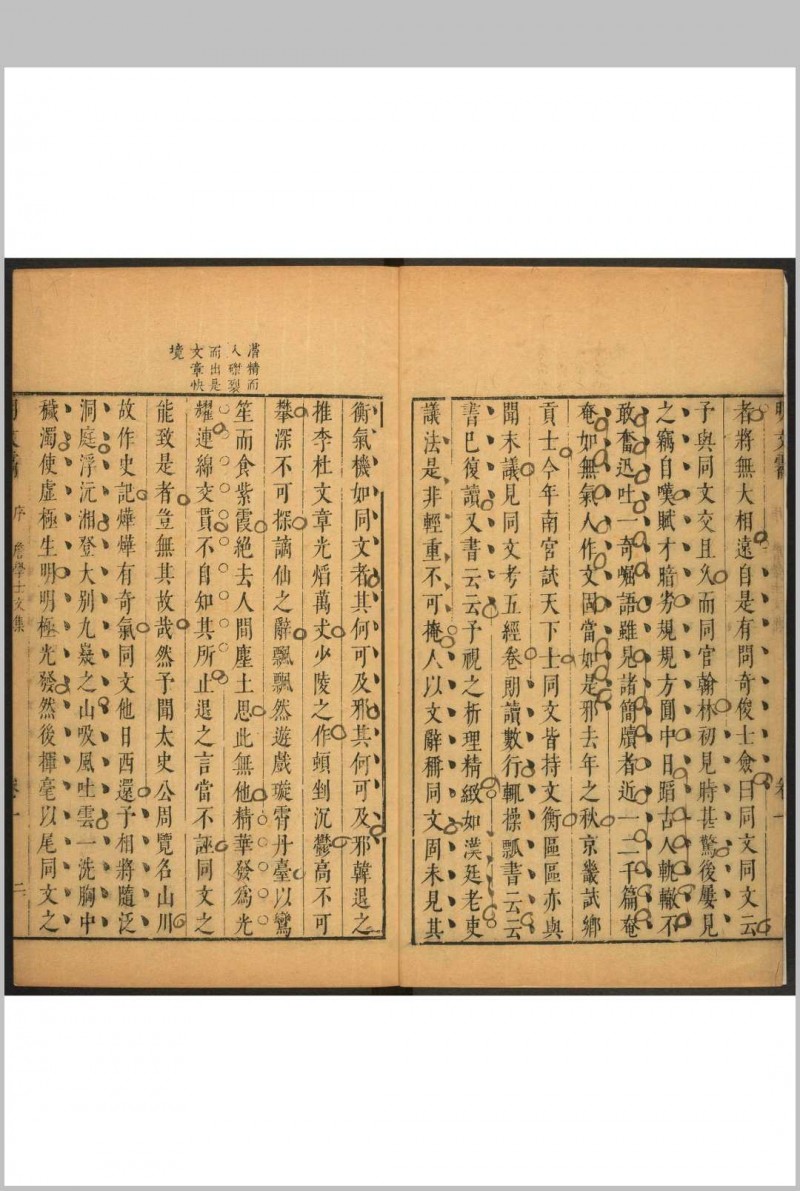 者將無大相遠自是有問奇俊士僉曰同文同文云
子與同文交且久而同官翰林初見時甚驚後屢見
之竊自嘆賦才暗劣規規方圓中日蹈古人軌轍不
敢奮迅吐一奇囑語雖見諸簡牘者近一二千篇奄
奄如無氣人作文固當如是邪去年之秋京畿試鄉
貢士今年南宮試天下士同文皆持文衡區區亦與
聞末議見同文考五經卷朗讀數行輒操瓢書云云
書已復讀又書云云予視之析理精緻如漢廷老吏
議法是非輕重不可掩人以文辭稱同文固未見其
衡氣機如同文者其何可及邪其何可及邪韓退之
推李杜文章光熖萬丈少陵之作頓剉沉鬱高不可
攀深不可探謫仙之辭飄飄然遊戲璇霄丹臺以鸞
笙而食紫霞絕去人間塵土思此無他精華發爲光
耀連綿交貫不自知其所止退之言當不誣同文之
能致是者豈無其故哉然予聞太史公周覽名山川
故作史記燁燁有奇氣同文他日西還予相將隨泛
洞庭浮沅湘登大别九嶷之山吸風吐雲一洗胸中
穢濁使虛極生明明極光發然後揮毫以尾同文之
精而
入
而出是
文章快
境
序
學士文集
卷一
二